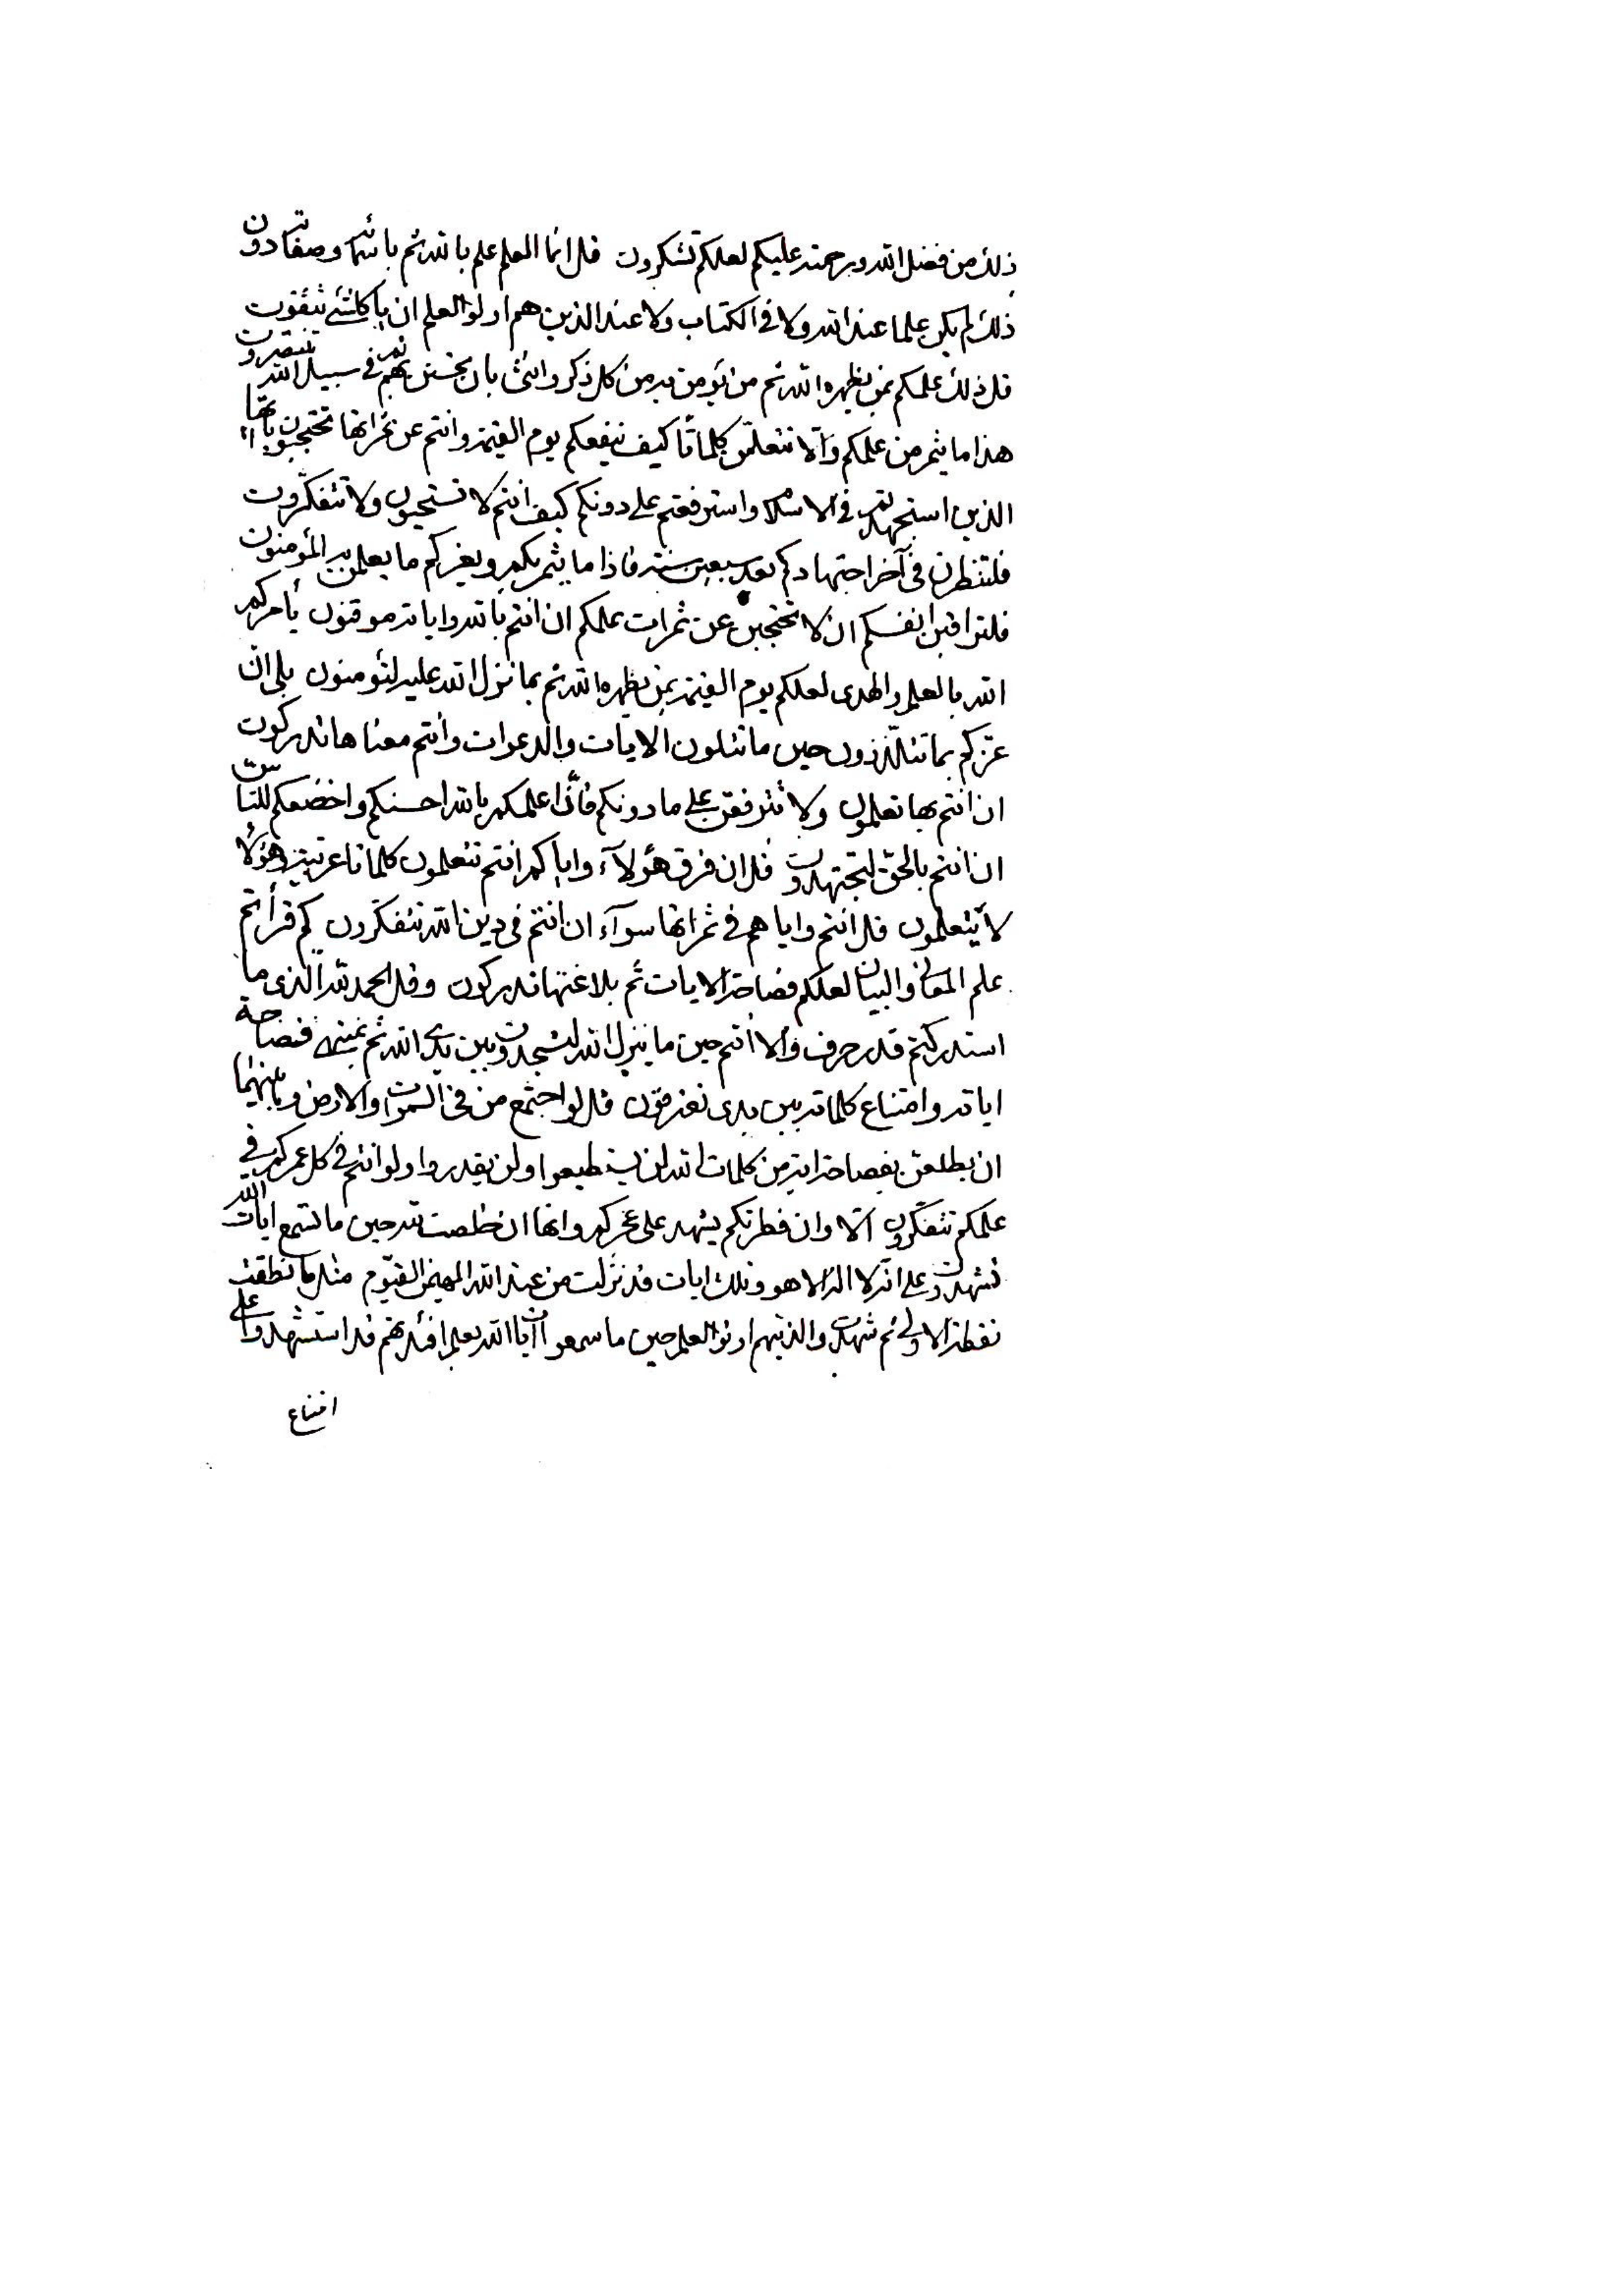 ذلك من فضل الله ورحمته عليكم لعلكم تشكرون قل انما العلم علم بالله ثم باسمائه وصفاته دون
ذلك لم يكن علما عند الله ولا فى الكتاب ولا عند الذين هم اولوا العلم ان يا كلشئ تتقون
قل ذلك علمكم بمن يظهره الله ثم من يؤمن به من كل ذكر وانثى بان فى سبيل الله تنتصرون
هذا ما يثمر من علمكم والا تتعلمن كلماتا كيف ينفعكم يوم القيمة وانتم عن ثمراتها تحتجبون
الذين استجهدتم فى الاسلام واسترفعتم على دونكم كيف انتم لا تستحيون ولا تتفكرون
فلتنظرن فى آخر اجتهادكم بعد سبعين سنة فاذا ما يثمر بكم ويعزكم ما يعلمن به المؤمنون
فلتراقبن انفسكم ان لا تحتجبن عن ثمرات علمكم ان انتم بالله واياته موقنون يأمركم
الله بالعلم والهدى لعلكم يوم القيمة بمن يظهره الله ثم بما نزل الله عليه لتؤمنون بلى ان
عزكم بما تتلذذون حين ما تتلون الايات والدعوات وانتم معناها تدركون
ان انتم بها تعلمون ولا تترفعن على ما دونكم فان اعلمكم بالله احسنكم واخضعكم للناس
ان انتم بالحق لتجتهدون قل ان فرق هؤلآء واياكم انتم تتعلمون كلماتا عربية وهؤلاء
لا يتعلمون قل انتم واياهم فى ثمراتها سوآء ان انتم فى دين الله تتفكرون كم قرأتم
علم المعانى والبيان لعلكم فصاحة الايات ثم بلاغتها تدركون وقل الحمد لله الذى ما
استدركتم قدر حرف والا انتم حين ما ينزل الله لتسجدون بين يدى الله ثم فصاحة
اياته وامتناع كلماته بين يدى قل لو اجتمع من فى السموات والارض وما بينهما
ان يطلعن بفصاحة اية من كلمات الله لن يستطيعوا ولن يقدروا ولو انتم فى كل عمركم فى
علمكم تتفكرون الا وان فطرتكم يشهد على عجزكم وانها ان خلصت لله حين ما تسمع ايات الله
تشهدون على انه لا اله الا هو وتلك ايات قد نزلت من عند الله المهيمن القيوم مثل ما نطقت
نقطة الاولى ثم شهدت والذينهم اولوا العلم حين ما سمعوا ايات الله يعلم افئدتهم قد استشهدوا على
امتناع